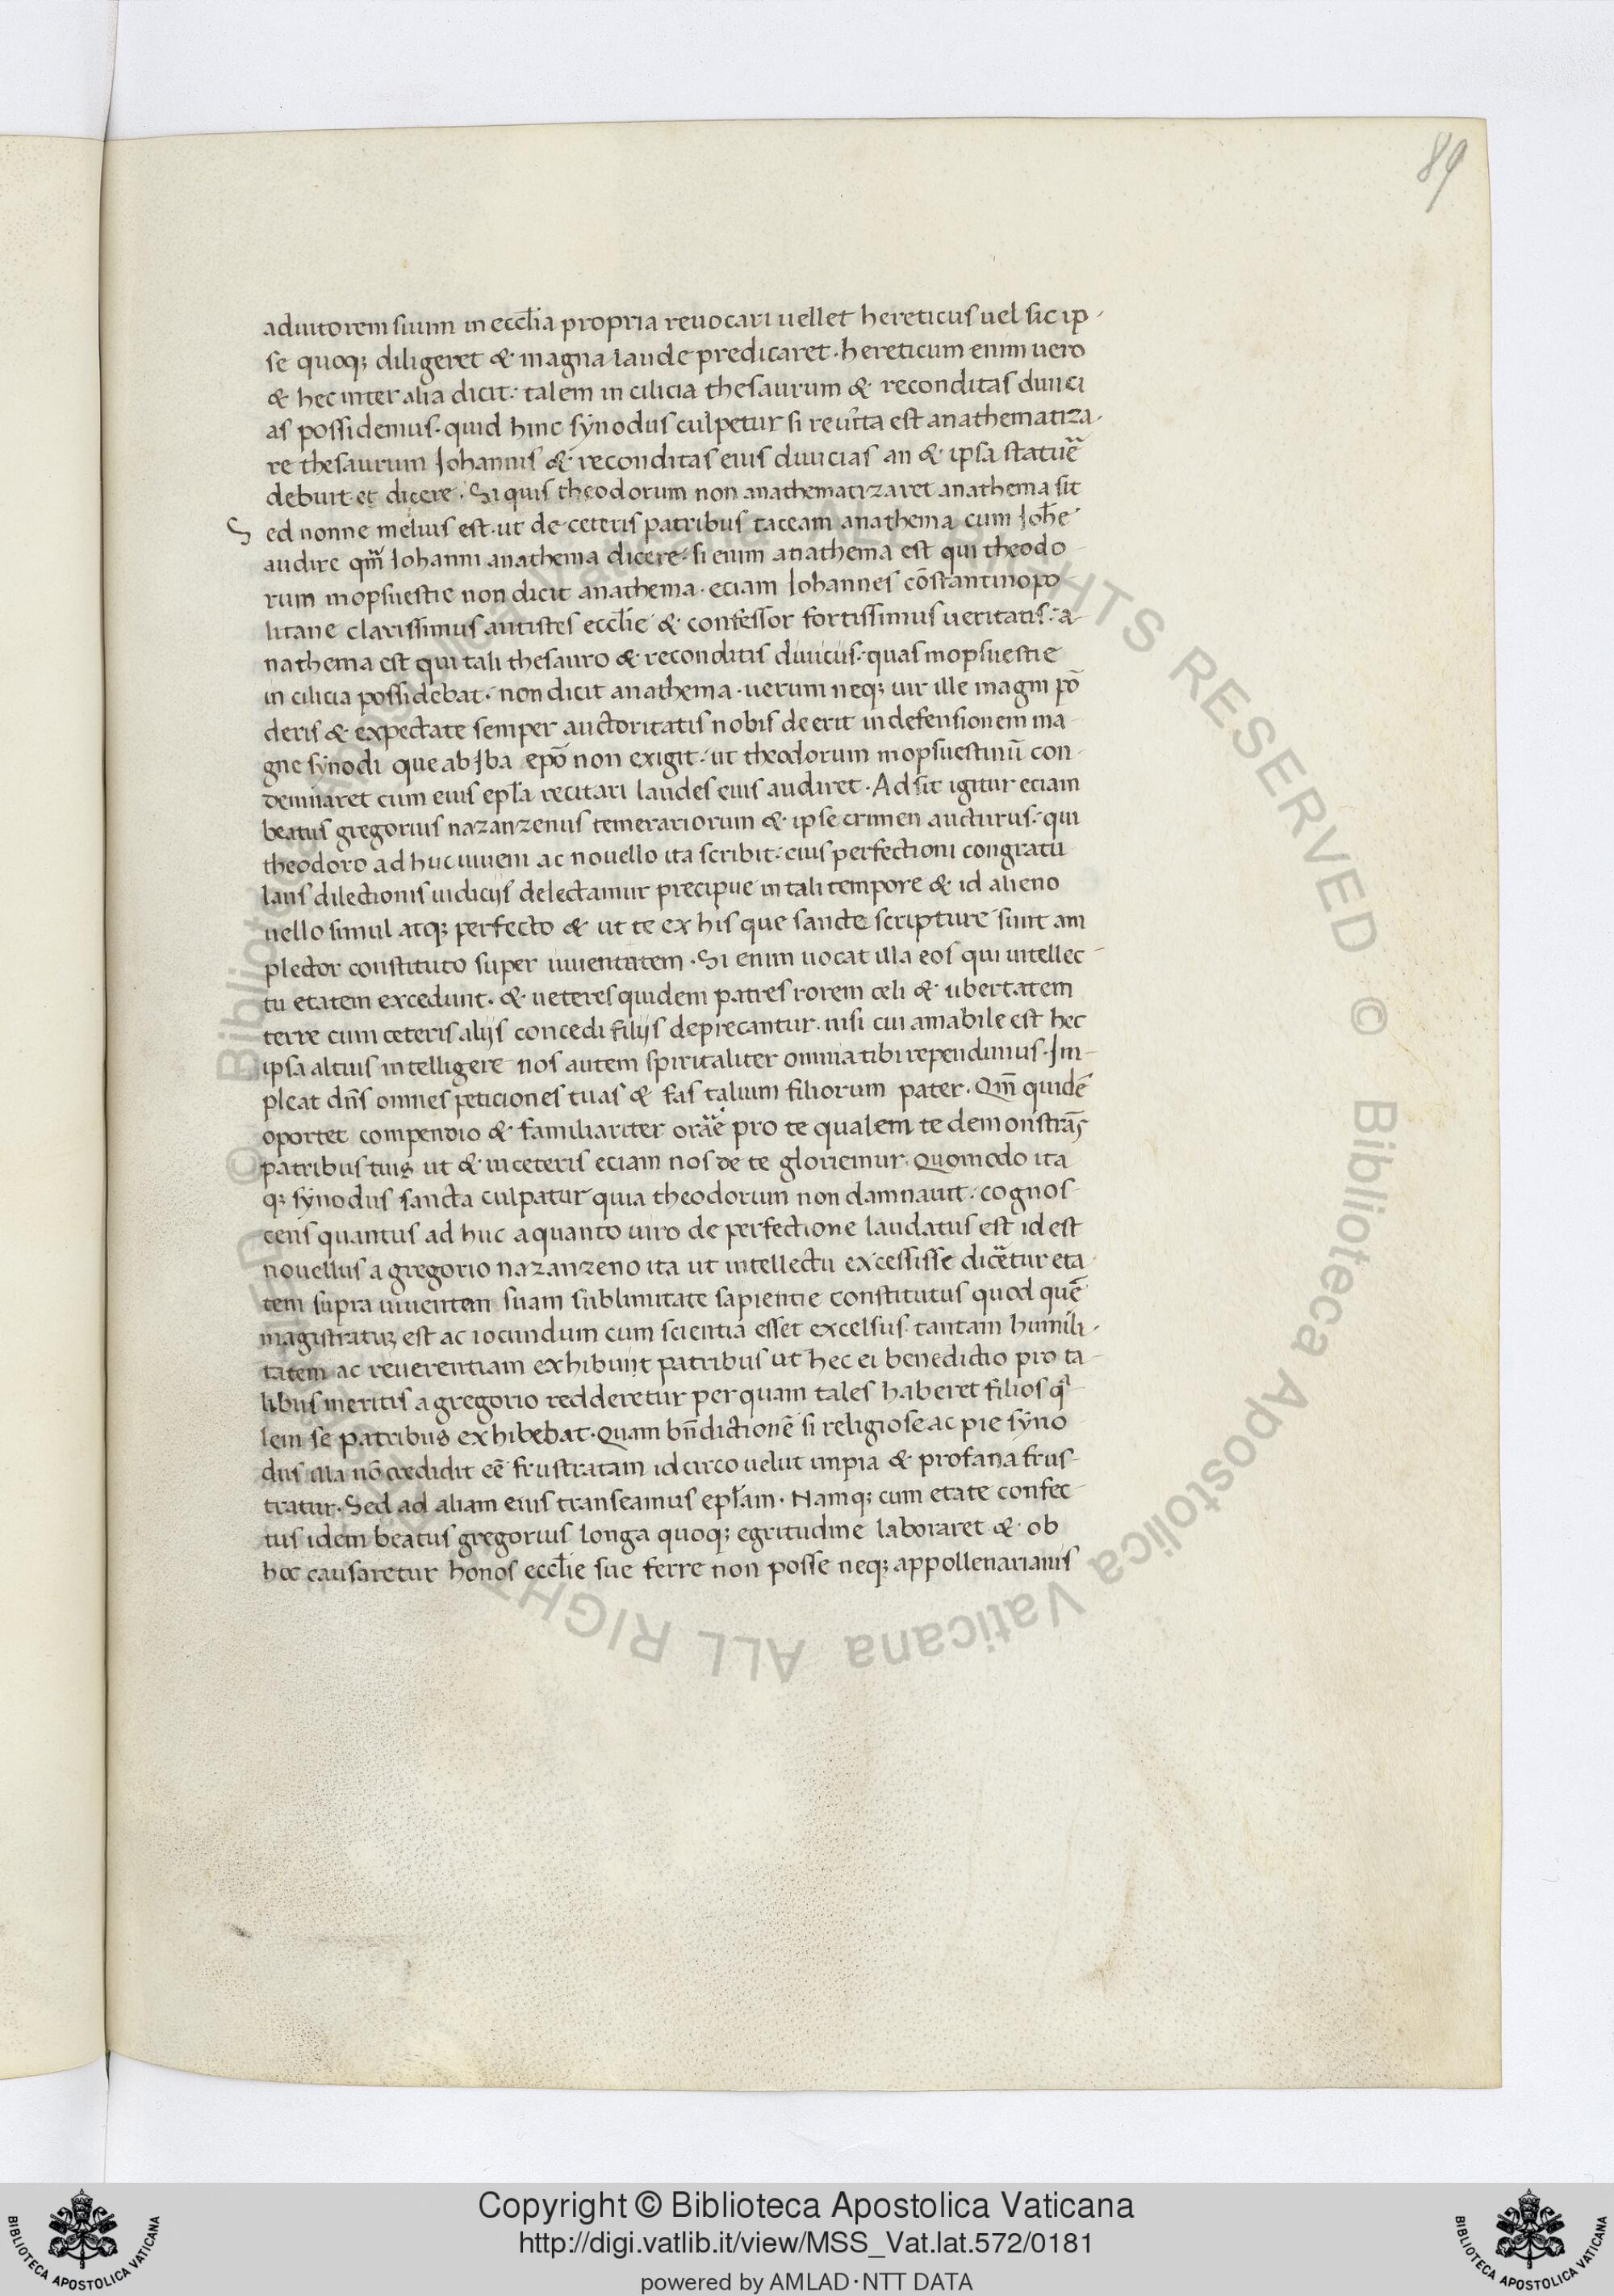 89
adiutorem suum in eccl̄ia propria reuocari uellet hereticus uel sic ip-
se quoq; diligeret & magna laude predicaret · hereticum enim uero
& hec inter alia dicit · talem in cilicia thesaurum & reconditas diuici
as possidemus · quid hinc synodus culpetur si reuīta est anathematiza-
re thesaurum Johannis & reconditas eius diuicias an & ipsa statuē
debuit et dicere · Si quis theodorum non anathematizaret anathema sit
Sed nonne melius est · ut de ceteris patribus taceam anathema cum Joh̄e
audire qm̄ Iohanni anathema dicere · si enim anathema est qui theodo-
rum mopsuestie non dicit anathema · eciam Iohannes cōstantinopo-
litane clarissimus antistes eccl̄ie & confessor fortissimus ueritatis · a-
nathema est qui tali thesauro & reconditis diuiciis · quas mopsuestie
in cilicia possidebat · non dicit anathema · uerum neq; uir ille magni pō
deris & expectate semper auctoritatis nobis deerit in defensionem ma-
gne synodi que ab Iba ep̄o non exigit · ut theodorum mopsuestinū con-
demnaret cum eius ep̄la recitari laudes eius audiret · Adsit igitur eciam
beatus gregorius nazanzenus temerariorum & ipse crimen aucturus · qui
theodoro ad huc iuueni ac nouello ita scribit · eius perfectioni congratu
lans dilectionis iudiciis delectamur precipue in tali tempore & id alieno
uello simul atq; perfecto & ut te ex his que sancte scripture sunt am
plector constituto super iuuentatem · Si enim uocat illa eos qui intellec-
tu etatem excedunt · & ueteres quidem patres rorem celi & ubertatem
terre cum ceteris aliis concedi filiis deprecantur · nisi cui amabile est hec
ipsa altius intelligere nos autem spiritaliter omnia tibi rependimus · Im-
pleat dn̄s omnes peticiones tuas & fas talium filiorum pater · Qm̄ quidē
oportet compendio & familiariter orāe pro te qualem te demonstrās
patribus tuis ut & in ceteris eciam nos de te gloriemur · Quomodo ita
q; synodus sancta culpatur quia theodorum non damnauit · cognos-
cens quantus ad huc a quanto uiro de perfectione laudatus est id est
nouellus a gregorio nazanzeno ita ut intellectu excessisse dicētur eta-
tem supra iuuentem suam sublimitate sapientie constitutus quod quē
magistratus est ac iocundum cum scientia esset excelsus · tantam humili-
tatem ac reuerentiam exhibunt patribus ut hec ei benedictio pro ta-
libus meritis a gregorio redderetur per quam tales haberet filios q̄
lem se patribus exhibebat · Quam bn̄dictionē si religiose ac pie syno
dus illa nō credidit eē frustratam idcirco uelut impia & profana frus-
tratur · Sed ad aliam eius transeamus ep̄lam · Namq; cum etate confec-
tus idem beatus gregorius longa quoq; egritudine laboraret & ob
hoc causaretur honos eccl̄ie sue ferre non posse neq; appollenarianis
Copyright © Biblioteca Apostolica Vaticana
http://digi.vatlib.it/view/MSS_Vat.lat.572/0181
powered by AMLAD·NTT DATA